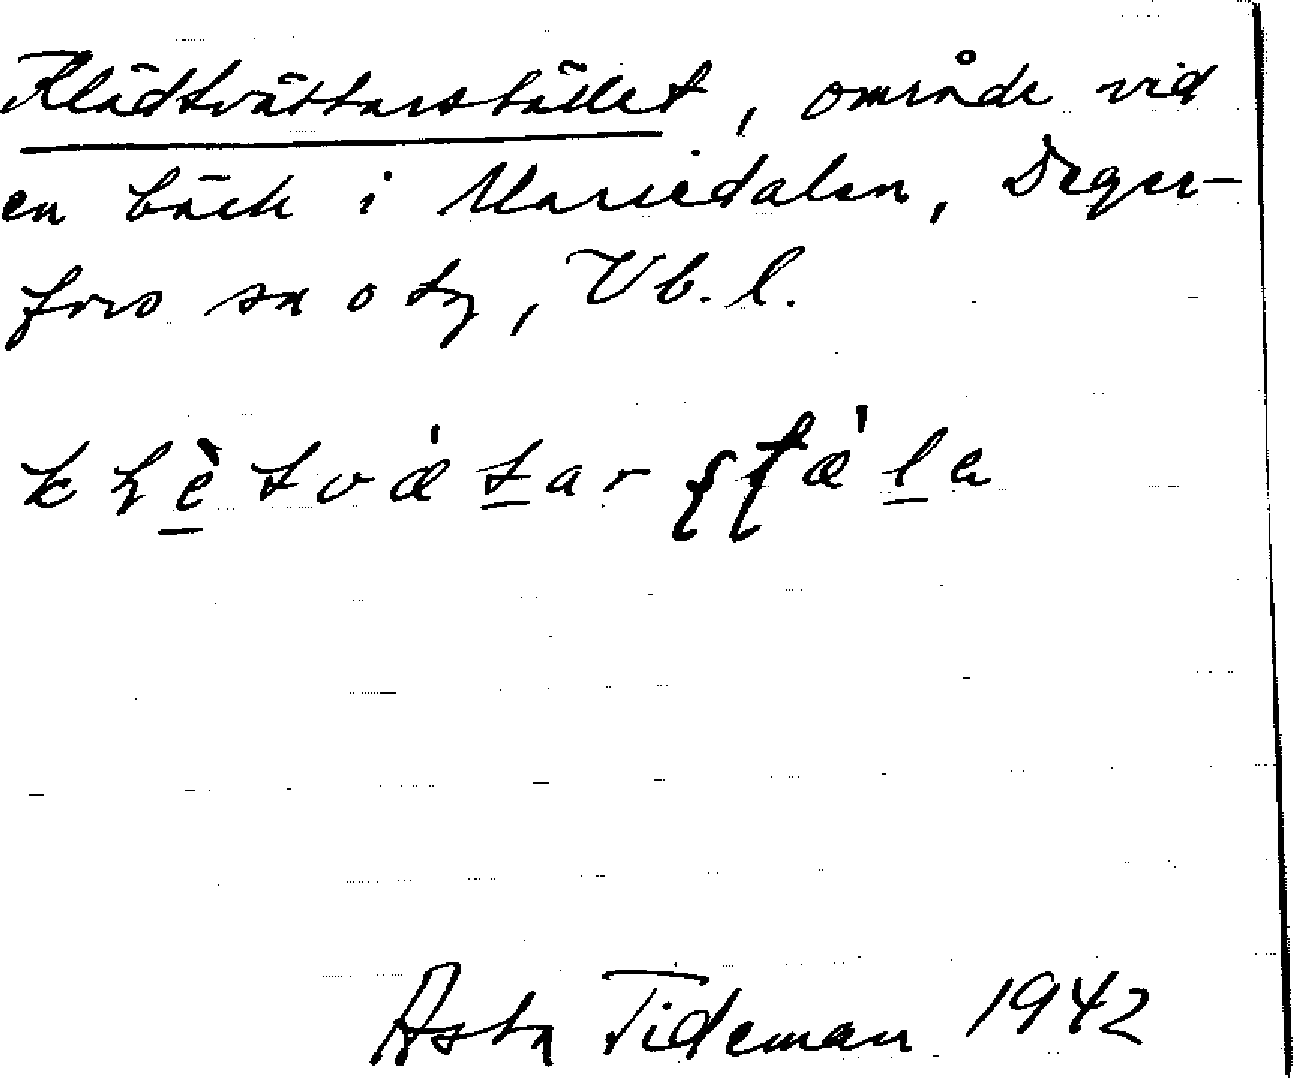 Klädtvättarstället, område vid
en bäck i Mariedalen, Deger-
fors sn o tg, Vb. l.
Asta Tideman 1942